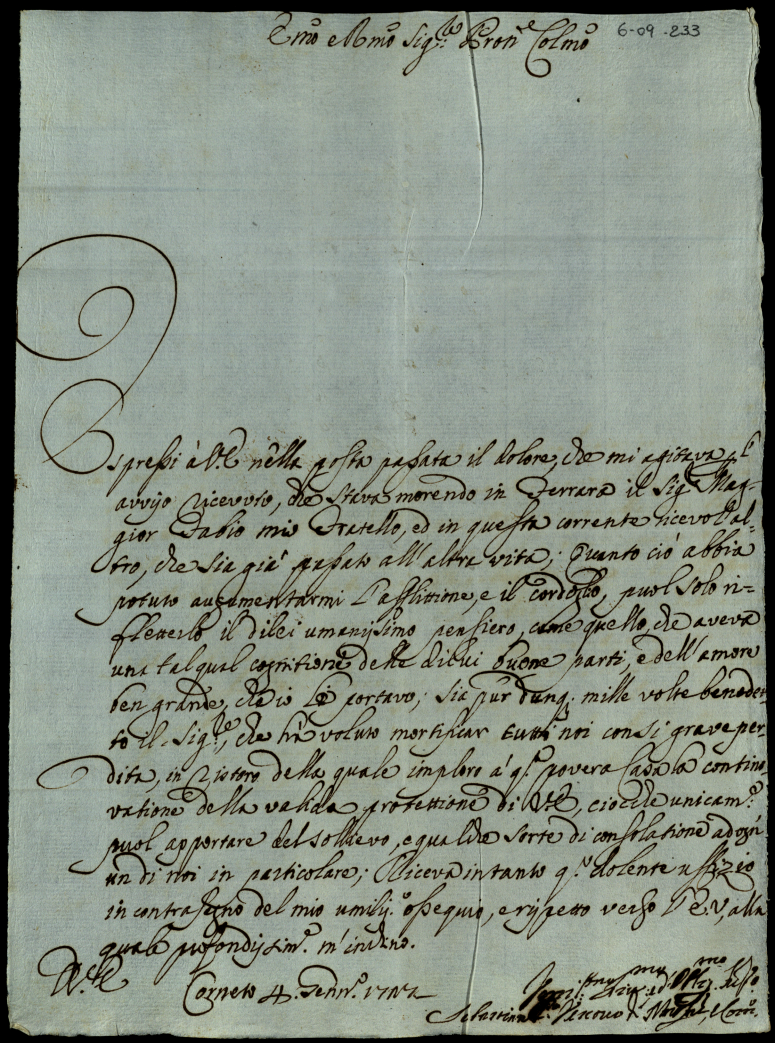 6-09-233
Emo e Rmo Sig.re Pron.e Colmo
Espressi à V.E. nella posta passata il dolore, che mi agitava p l'
avviso ricevuto, che stava morendo in Ferrara il Sig.r Mag-
gior Fabio mio Fratello, ed in questa corrente ricevo l'al-
tro, che sia già passato all'altra vita; Quanto ciò abbia
potuto augumentarmi l'afflittione, e il cordoglio, puol solo ri-
fletterlo il dilei umanissimo pensiero, come quello, che aveva
una tal qual cognitione delle dilui buone parti, e dell'amore
ben grande, che io Le portavo; sia pur dunq; mille volte benedet-
to il Sig.re, che hà voluto mortificar tutti noi con si grave per-
dita, in ristoro della quale imploro a q.a povera Casa la contino-
vatione della valida protettione di V.E, ciocche unicam.e
puol apportare del sollievo, e qualche sorte di consolatione ad ogn'
un di noi in particolare; Riceva intanto q.o dolente uffizio
in contrasegno del mio umiliss.o ossequio, e rispetto verso l'E.V, alla
quale profondissim.e m'inchino.
D. V.E
Corneto 4 Genn.o
Sebastiano Vescovo di Montef.e e Corn.o